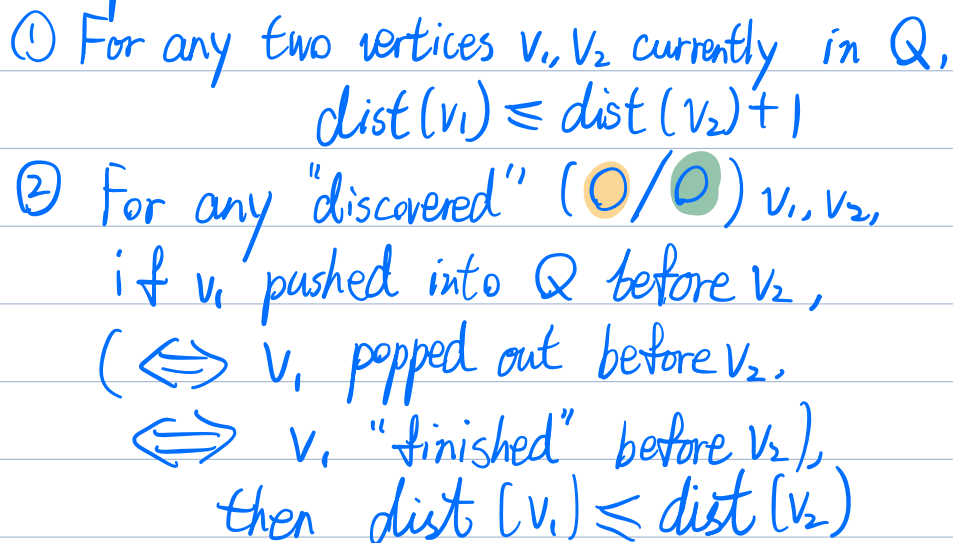 ① For any two vertices v₁, v₂ currently in Q,
dist(v₁) ≤ dist(v₂)+1
② For any "discovered" (O/O) v₁, v₂,
if v₁ pushed into Q before v₂,
(⟺ v₁ popped out before v₂,
⟺ v₁ "finished" before v₂),
then dist(v₁) ≤ dist(v₂)